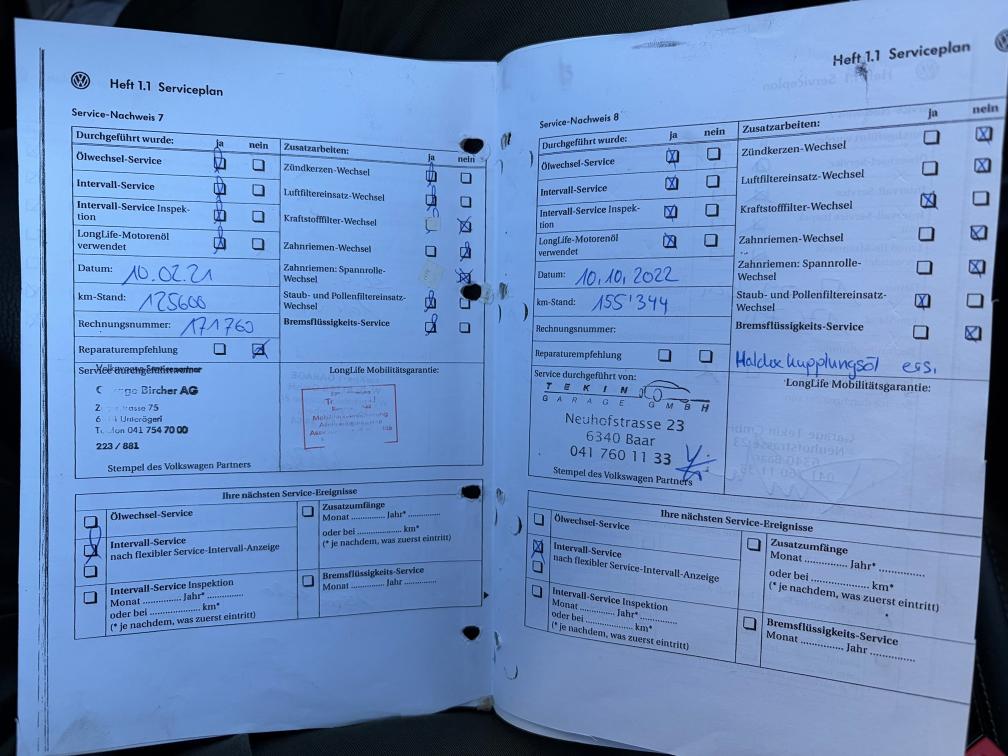 Heft 1.1 Serviceplan
Service-Nachweis 7
Durchgeführt wurde: ja nein
Ölwechsel-Service
Intervall-Service
Intervall-Service Inspek-
tion
LongLife-Motorenöl
verwendet
Datum: 10.02.21
km-Stand: 125600
Rechnungsnummer: 171760
Reparaturempfehlung
Zusatzarbeiten: ja nein
Zündkerzen-Wechsel
Luftfiltereinsatz-Wechsel
Kraftstofffilter-Wechsel
Zahnriemen-Wechsel
Zahnriemen: Spannrolle-
Wechsel
Staub- und Pollenfiltereinsatz-
Wechsel
Bremsflüssigkeits-Service
Service durchgeführt von:
Bircher AG
strasse 75
Unterägeri
041 754 70 00
223 / 881
Stempel des Volkswagen Partners
LongLife Mobilitätsgarantie:
Ihre nächsten Service-Ereignisse
Ölwechsel-Service
Intervall-Service
nach flexibler Service-Intervall-Anzeige
Intervall-Service Inspektion
Monat .............. Jahr* ..............
oder bei .................. km*
(* je nachdem, was zuerst eintritt)
Zusatzumfänge
Monat .............. Jahr* ..............
oder bei .................. km*
(* je nachdem, was zuerst eintritt)
Bremsflüssigkeits-Service
Monat .............. Jahr ..............
Heft 1.1 Serviceplan
Service-Nachweis 8
Durchgeführt wurde: ja nein
Ölwechsel-Service
Intervall-Service
Intervall-Service Inspek-
tion
LongLife-Motorenöl
verwendet
Datum: 10.10.2022
km-Stand: 155'344
Rechnungsnummer:
Reparaturempfehlung
Zusatzarbeiten: ja nein
Zündkerzen-Wechsel
Luftfiltereinsatz-Wechsel
Kraftstofffilter-Wechsel
Zahnriemen-Wechsel
Zahnriemen: Spannrolle-
Wechsel
Staub- und Pollenfiltereinsatz-
Wechsel
Bremsflüssigkeits-Service
Haldex Kupplungsöl ers.
Service durchgeführt von:
TEKIN
GARAGE GMBH
Neuhofstrasse 23
6340 Baar
041 760 11 33
Stempel des Volkswagen Partners
LongLife Mobilitätsgarantie:
Ihre nächsten Service-Ereignisse
Ölwechsel-Service
Intervall-Service
nach flexibler Service-Intervall-Anzeige
Intervall-Service Inspektion
Monat .............. Jahr* ..............
oder bei .................. km*
(* je nachdem, was zuerst eintritt)
Zusatzumfänge
Monat .............. Jahr* ..............
oder bei .................. km*
(* je nachdem, was zuerst eintritt)
Bremsflüssigkeits-Service
Monat .............. Jahr ..............